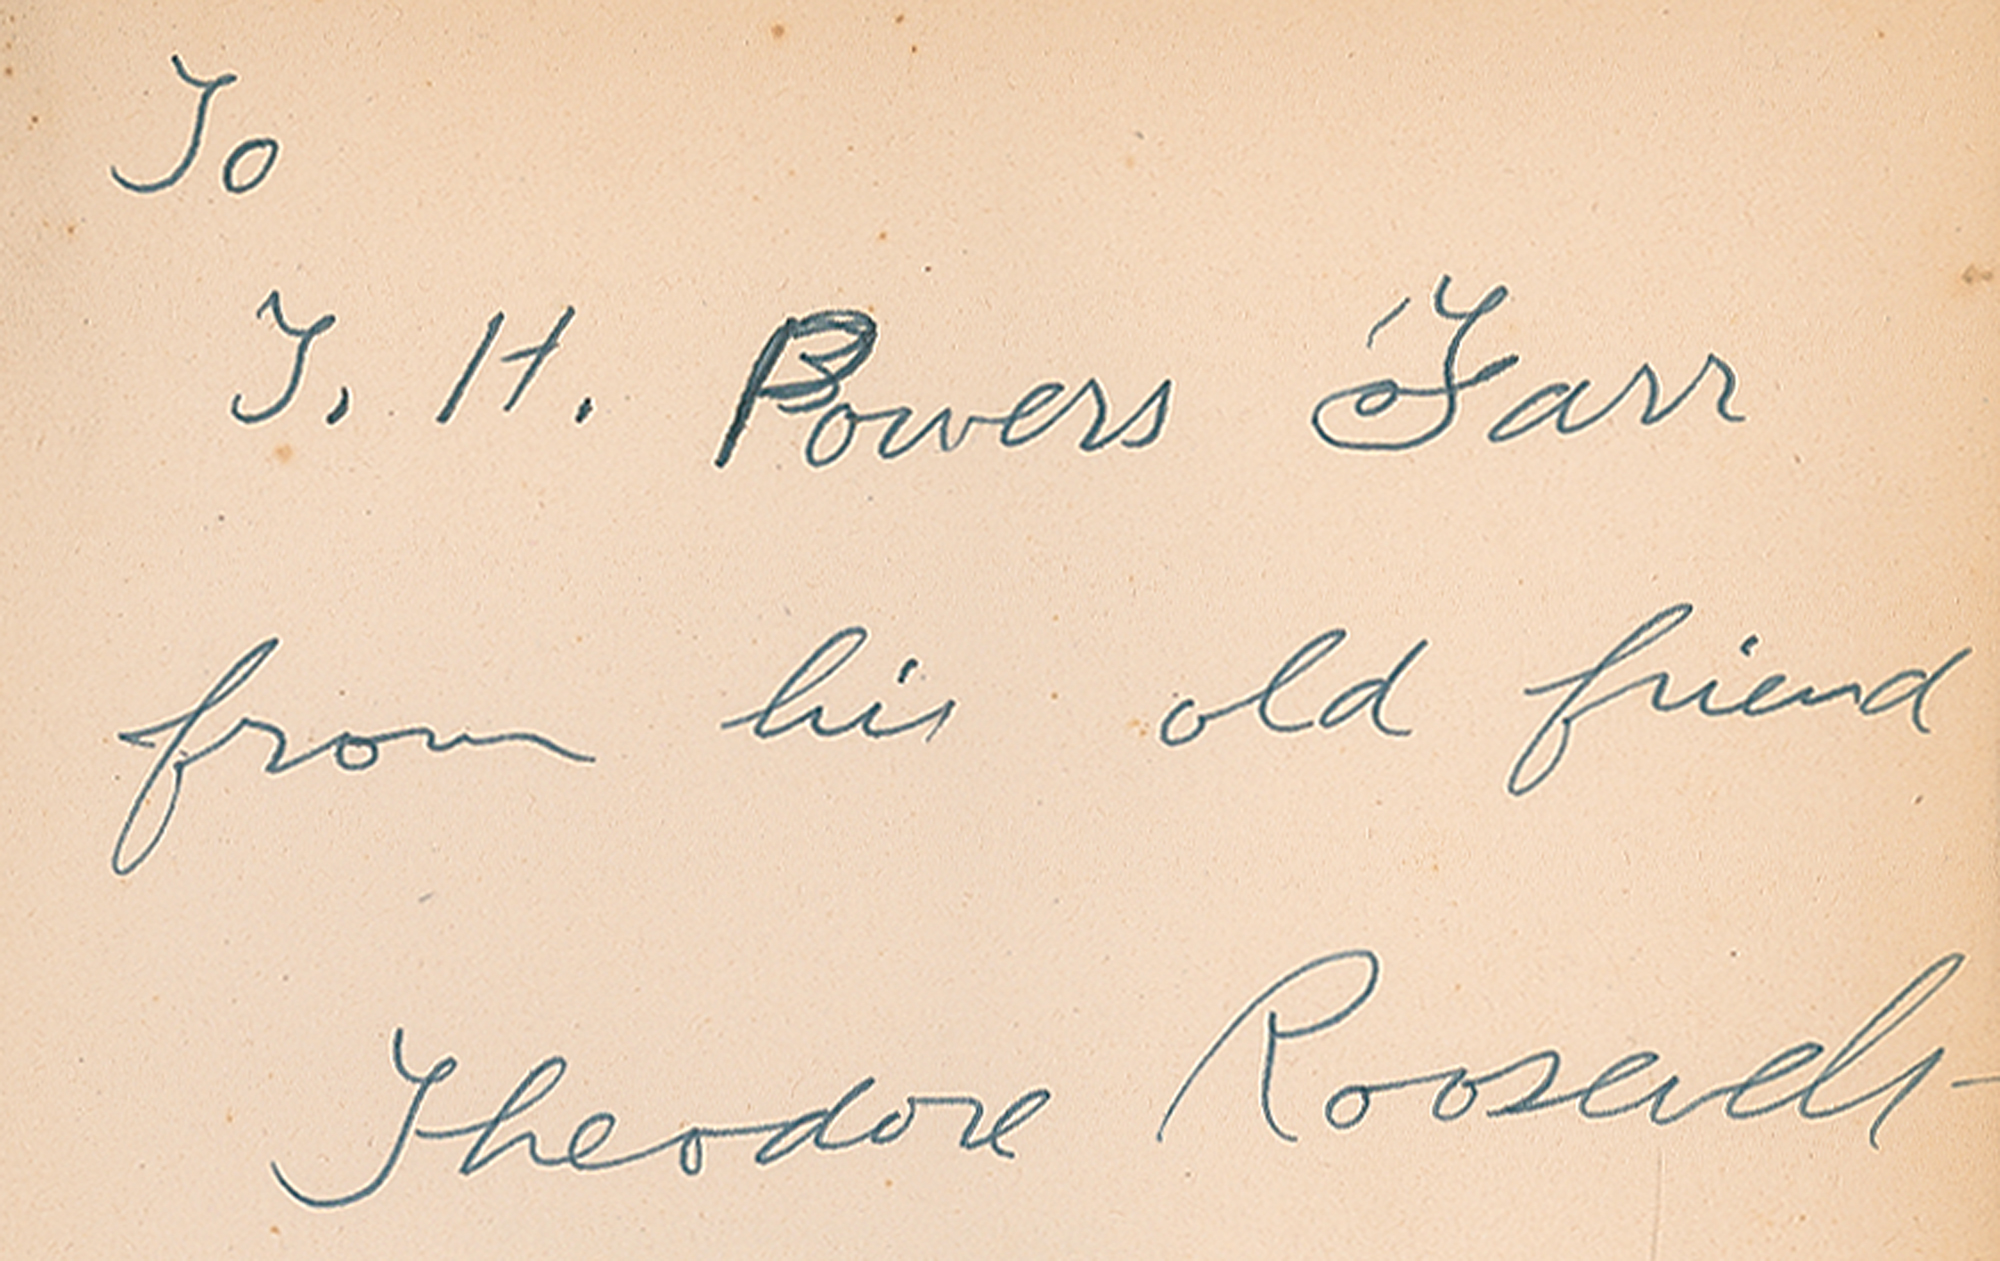 To
T. H. Powers Farr
from his old friend
Theodore Roosevelt